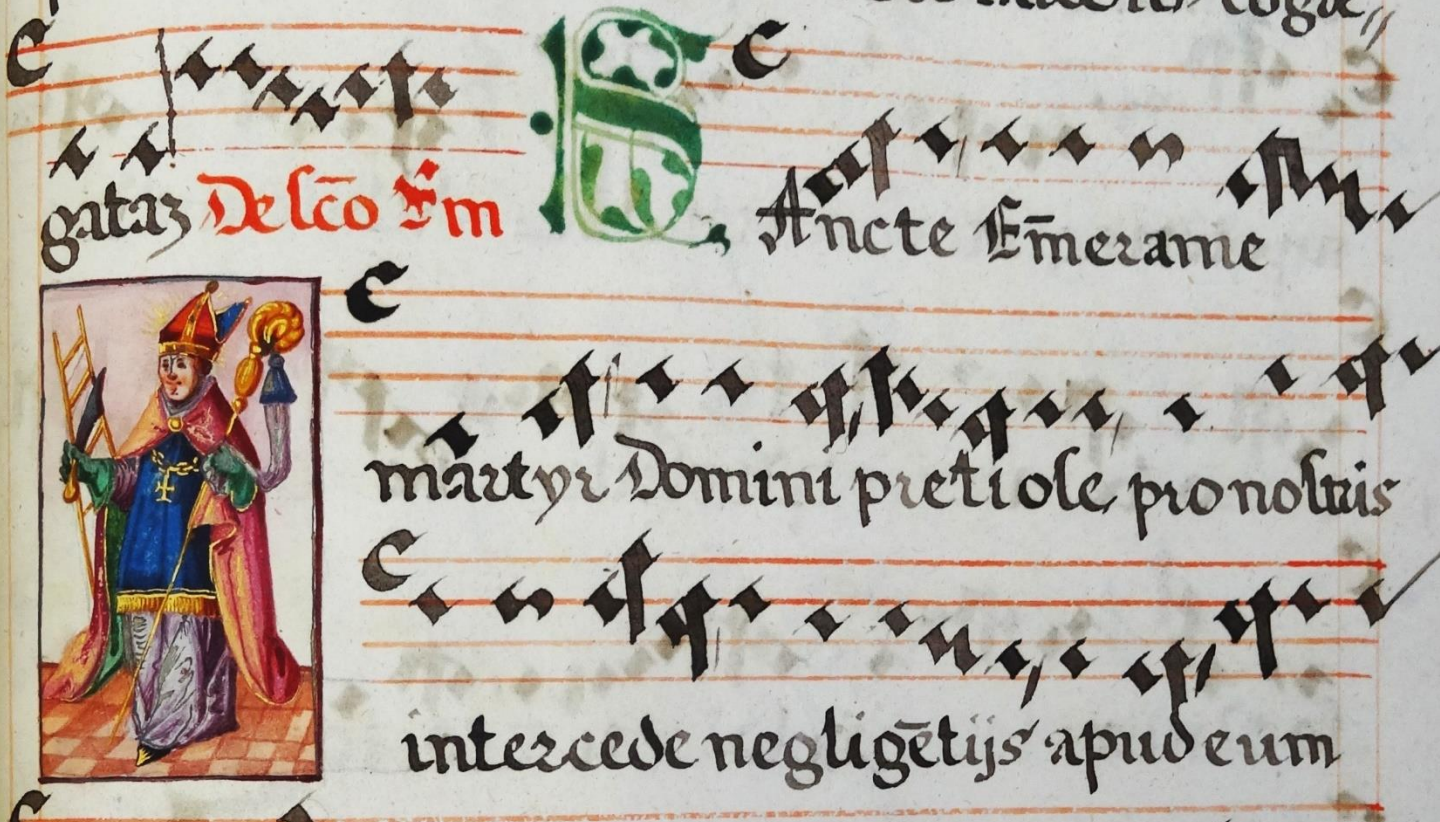 gataꝫ De sc̄o Em
SAncte Em̄erame
martyr Domini pretiose pro nostris
intercede neglige̅tijs apud eum